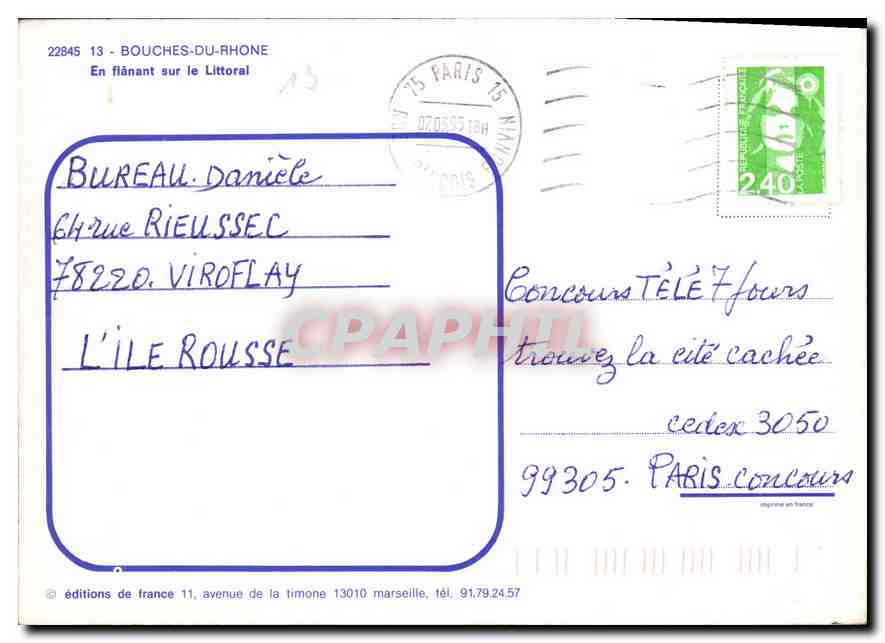 22845 13 - BOUCHES-DU-RHONE
En flânant sur le Littoral
13
75 PARIS 15
07.06.95 18H
REPUBLIQUE FRANÇAISE
2,40
LA POSTE
BUREAU. Danièle
64 rue RIEUSSEC
78220. VIROFLAY
L'ILE ROUSSE
CPAPHIL
Concours TÉLÉ 7 Jours
trouvez la cité cachée
cedex 3050
99305. PARIS concours
imprimé en france
© éditions de france 11, avenue de la timone 13010 marseille, tél. 91.79.24.57